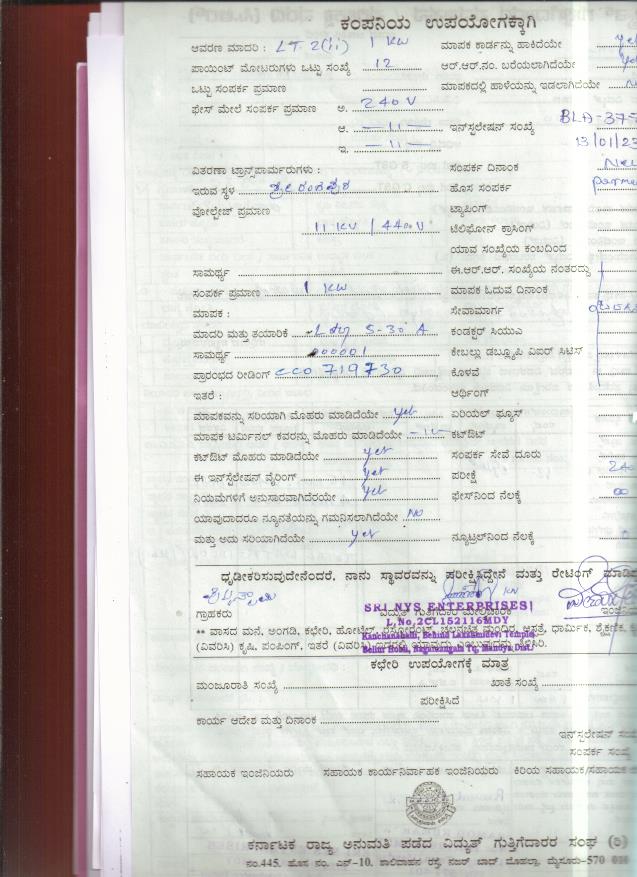 ಕಂಪನಿಯ ಉಪಯೋಗಕ್ಕಾಗಿ
ಆವರಣ ಮಾದರಿ : LT 2(ii) 1 KW ಮಾಪಕ ಕಾರ್ಡನ್ನು ಹಾಕಿದೆಯೇ
ಪಾಯಿಂಟ್ ಮೋಟರುಗಳು ಒಟ್ಟು ಸಂಖ್ಯೆ 12 ಆರ್.ಆರ್.ನಂ. ಬರೆಯಲಾಗಿದೆಯೇ
ಒಟ್ಟು ಸಂಪರ್ಕ ಪ್ರಮಾಣ ಮಾಪಕದಲ್ಲಿ ಹಾಳೆಯನ್ನು ಇಡಲಾಗಿದೆಯೇ
ಫೇಸ್ ಮೇಲೆ ಸಂಪರ್ಕ ಪ್ರಮಾಣ ಅ. 240 V
ಆ. —11— ಇನ್‌ಸ್ಟಲೇಷನ್ ಸಂಖ್ಯೆ BLA-375
ಇ. —11— 13/01/23
ವಿತರಣಾ ಟ್ರಾನ್ಸ್‌ಪಾರ್ಮರುಗಳು : ಸಂಪರ್ಕ ದಿನಾಂಕ
ಇರುವ ಸ್ಥಳ ಹೊಸ ಸಂಪರ್ಕ
ವೋಲ್ಟೇಜ್ ಪ್ರಮಾಣ ಟ್ಯಾಪಿಂಗ್
11 KV / 440 V ಟೆಲಿಫೋನ್ ಕ್ರಾಸಿಂಗ್
ಯಾವ ಸಂಖ್ಯೆಯ ಕಂಬದಿಂದ
ಸಾಮರ್ಥ್ಯ ಈ.ಆರ್.ಆರ್. ಸಂಖ್ಯೆಯ ನಂತರದ್ದು
ಸಂಪರ್ಕ ಪ್ರಮಾಣ 1 KW ಮಾಪಕ ಓದುವ ದಿನಾಂಕ
ಮಾಪಕ : ಸೇವಾಮಾರ್ಗ
ಮಾದರಿ ಮತ್ತು ತಯಾರಿಕೆ 5-30 A ಕಂಡಕ್ಟರ್ ಸಿಯುಎ
ಸಾಮರ್ಥ್ಯ 000001 ಕೇಬಲ್ಲು ಡಬ್ಲ್ಯೂಪಿ ವಿಐರ್ ಸಿಟಿಸ್
ಪ್ರಾರಂಭದ ರೀಡಿಂಗ್ CCO 719730 ಕೊಳವೆ
ಇತರೆ : ಆರ್ಥಿಂಗ್
ಮಾಪಕವನ್ನು ಸರಿಯಾಗಿ ಮೊಹರು ಮಾಡಿದೆಯೇ yes ಏರಿಯಲ್ ಫ್ಯೂಸ್
ಮಾಪಕ ಟರ್ಮಿನಲ್ ಕವರನ್ನು ಮೊಹರು ಮಾಡಿದೆಯೇ —11— ಕಟ್‌ಔಟ್
ಕಟ್‌ಔಟ್ ಮೊಹರು ಮಾಡಿದೆಯೇ yes ಸಂಪರ್ಕ ಸೇವೆ ದೂರು
ಈ ಇನ್‌ಸ್ಟಲೇಷನ್ ವೈರಿಂಗ್ yes ಪರೀಕ್ಷೆ 240
ನಿಯಮಗಳಿಗೆ ಅನುಸಾರವಾಗಿದೆರಯೇ yes ಫೇಸ್‌ನಿಂದ ನೆಲಕ್ಕೆ
ಯಾವುದಾದರೂ ನ್ಯೂನತೆಯನ್ನು ಗಮನಿಸಲಾಗಿದೆಯೇ NO
ಮತ್ತು ಅದು ಸರಿಯಾಗಿದೆಯೇ yes ನ್ಯೂಟ್ರಲ್‌ನಿಂದ ನೆಲಕ್ಕೆ
ಧೃಡೀಕರಿಸುವುದೇನೆಂದರೆ, ನಾನು ಸ್ಥಾವರವನ್ನು ಪರೀಕ್ಷಿಸಿದ್ದೇನೆ ಮತ್ತು ರೇಟಿಂಗ್
ಗ್ರಾಹಕರು ವಿದ್ಯುತ್ ಗುತ್ತಿಗೆದಾರರ
SRI NYS ENTERPRISES
L,No,2CL152116MDY
Kanchanahalli, Behind Laxamidevi Temple
Bellur Hobli, Nagamangala Tq, Mandya Dist.
** ವಾಸದ ಮನೆ, ಅಂಗಡಿ, ಕಛೇರಿ, ಹೋಟೆಲ್, ಧಾರ್ಮಿಕ, ಶೈಕ್ಷಣಿಕ,
(ವಿವರಿಸಿ) ಕೃಷಿ, ಪಂಪಿಂಗ್, ಇತರೆ (ವಿವರಿಸಿ)
ಕಛೇರಿ ಉಪಯೋಗಕ್ಕೆ ಮಾತ್ರ
ಮಂಜೂರಾತಿ ಸಂಖ್ಯೆ ಖಾತೆ ಸಂಖ್ಯೆ
ಪರೀಕ್ಷಿಸಿದೆ
ಕಾರ್ಯ ಆದೇಶ ಮತ್ತು ದಿನಾಂಕ
ಇನ್‌ಸ್ಟಲೇಷನ್
ಸಂಪರ್ಕ ಸಂಖ್ಯೆ
ಸಹಾಯಕ ಇಂಜಿನಿಯರು ಸಹಾಯಕ ಕಾರ್ಯನಿರ್ವಾಹಕ ಇಂಜಿನಿಯರು ಕಿರಿಯ ಸಹಾಯಕ/ಸಹಾಯಕ
ಕರ್ನಾಟಕ ರಾಜ್ಯ ಅನುಮತಿ ಪಡೆದ ವಿದ್ಯುತ್ ಗುತ್ತಿಗೆದಾರರ ಸಂಘ (ರಿ)
ನಂ.445, ಹೊಸ ನಂ. ಎನ್-10, ಶಾಲಿವಾಹನ ರಸ್ತೆ, ನಜರ್ ಬಾದ್ ಮೊಹಲ್ಲಾ, ಮೈಸೂರು-570 010